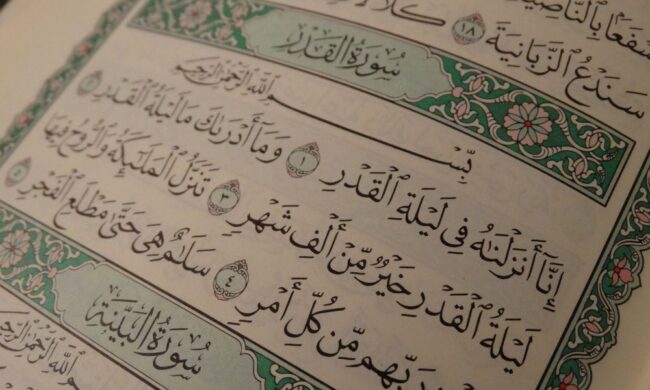 سَنَدْعُ ٱلزَّبَانِيَةَ ١٨ كَلَّا
سُورَةُ القَدْرِ
بِسْمِ ٱللَّهِ ٱلرَّحْمَٰنِ ٱلرَّحِيمِ
إِنَّآ أَنزَلْنَٰهُ فِى لَيْلَةِ ٱلْقَدْرِ ١ وَمَآ أَدْرَىٰكَ مَا لَيْلَةُ ٱلْقَدْرِ ٢
لَيْلَةُ ٱلْقَدْرِ خَيْرٌ مِّنْ أَلْفِ شَهْرٍ ٣ تَنَزَّلُ ٱلْمَلَٰٓئِكَةُ وَٱلرُّوحُ فِيهَا
رَبِّهِم مِّن كُلِّ أَمْرٍ ٤ سَلَٰمٌ هِىَ حَتَّىٰ مَطْلَعِ ٱلْفَجْرِ ٥
سُورَةُ البَيِّنَةِ
ٱللَّهِ ٱلرَّحْمَٰنِ ٱلرَّحِيمِ